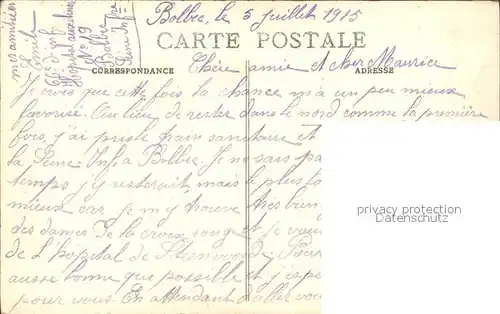 Bolbec, le 5 Juillet 1915
CARTE POSTALE
CORRESPONDANCE
ADRESSE
Chère amie et cher Maurice
Je crois que cette fois la chance m'a un peu mieux
favorisé. Au lieu de rester dans le nord comme la première
fois, j'ai pris le train sanitaire et
la Seine-Inf. à Bolbec. Je ne sais pas
temps j'y resterait, mais le plus
mieux car je m'y trouve très bien
des dames de la croix rouge et je
de l'hôpital de
aussi bonne que possible et j'esp
pour vous. En attendant d'aller vous
mes amitiés
Emile
Hôpital auxiliaire
N° 19
Bolbec
Seine Infre
privacy protection
Datenschutz